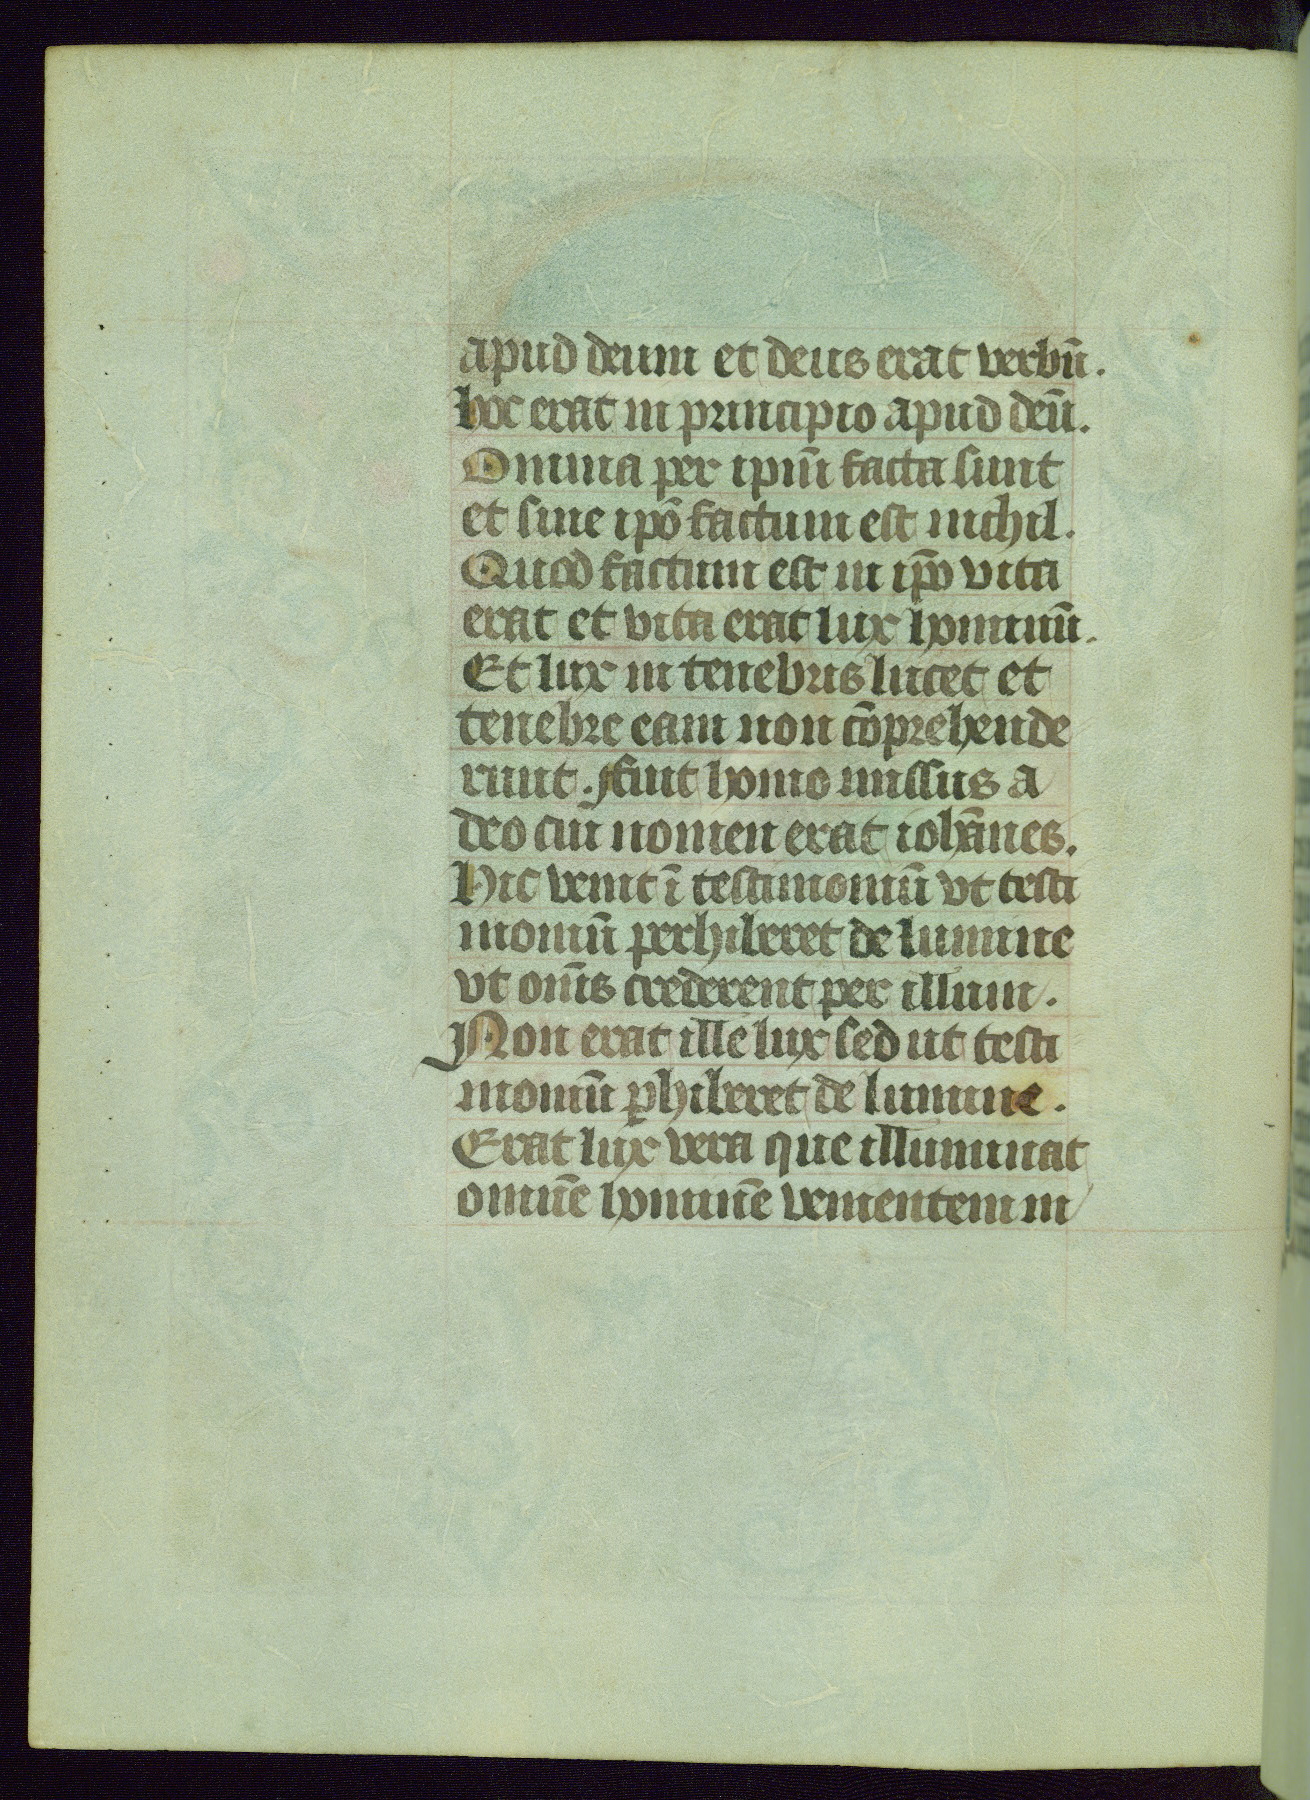 apud deum et deus erat verbū.
hoc erat in principio apud deū.
Omnia per ipm̄ facta sunt
et sine ipō factum est nichil.
Quod factum est in ip̄o vita
erat et vita erat lux hominū.
Et lux in tenebris lucet et
tenebre eam non cōprehende
runt. ffuit homo missus a
deo cui nomen erat iohānes.
Hic venit ī testimoniū vt testi
moniū perhiberet de lumine
vt om̄s crederent per illum.
Non erat ille lux sed ut testi
moniū ꝑhiberet de lumine.
Erat lux vera que illuminat
omnē hominē venientem in